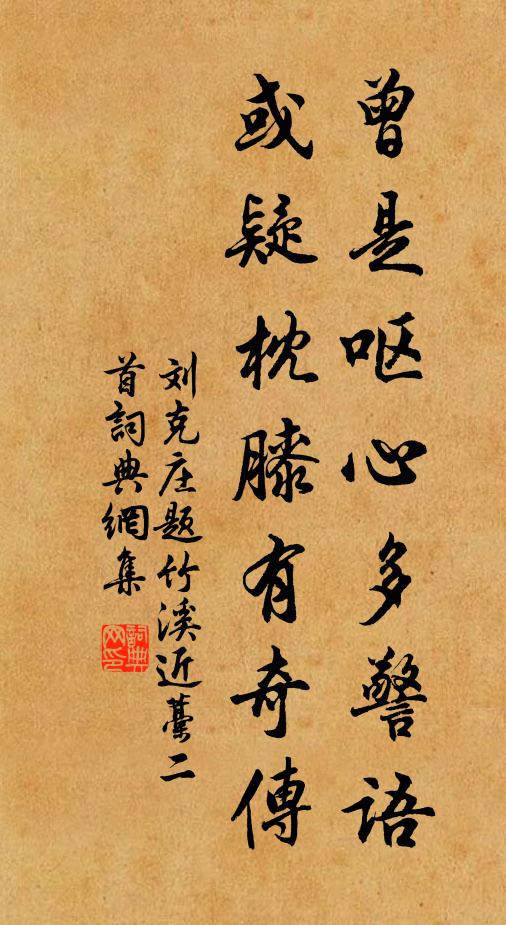 曾是呕心多警语
或疑枕膝有奇傳
刘克庄题竹溪近藁二
首詞典網集
詞典
网印